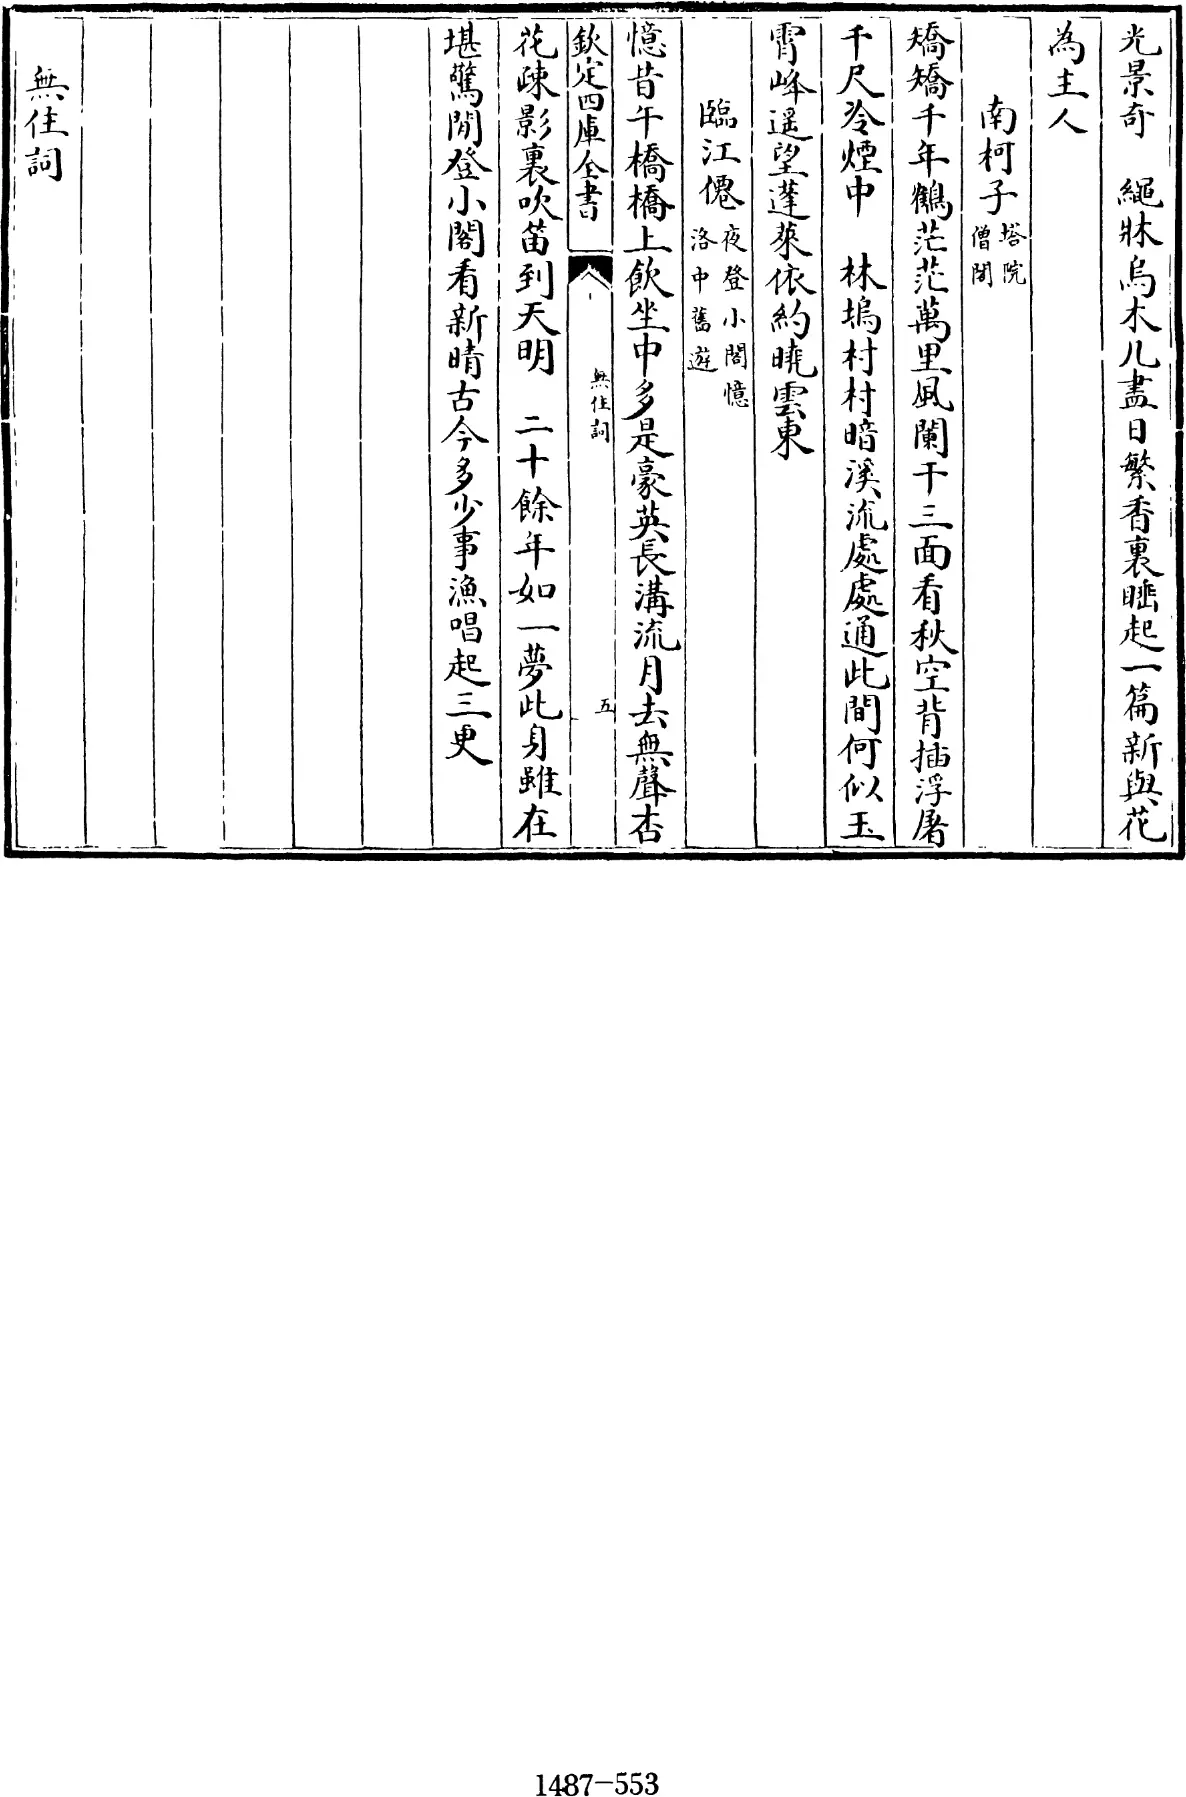 光景奇　繩牀烏木几盡日繁香裏睡起一篇新與花
為主人
南柯子塔院
僧閣
矯矯千年鶴茫茫萬里風闌干三面看秋空背插浮屠
千尺冷煙中　林塢村村暗溪流處處通此間何似玉
霄峰遥望蓬萊依約曉雲東
臨江僊夜登小閣憶
洛中舊遊
憶昔午橋橋上飲坐中多是豪英長溝流月去無聲杏
欽定四庫全書
無住詞
五
花疎影裏吹笛到天明　二十餘年如一夢此身雖在
堪驚閒登小閣看新晴古今多少事漁唱起三更
無住詞
1487-553